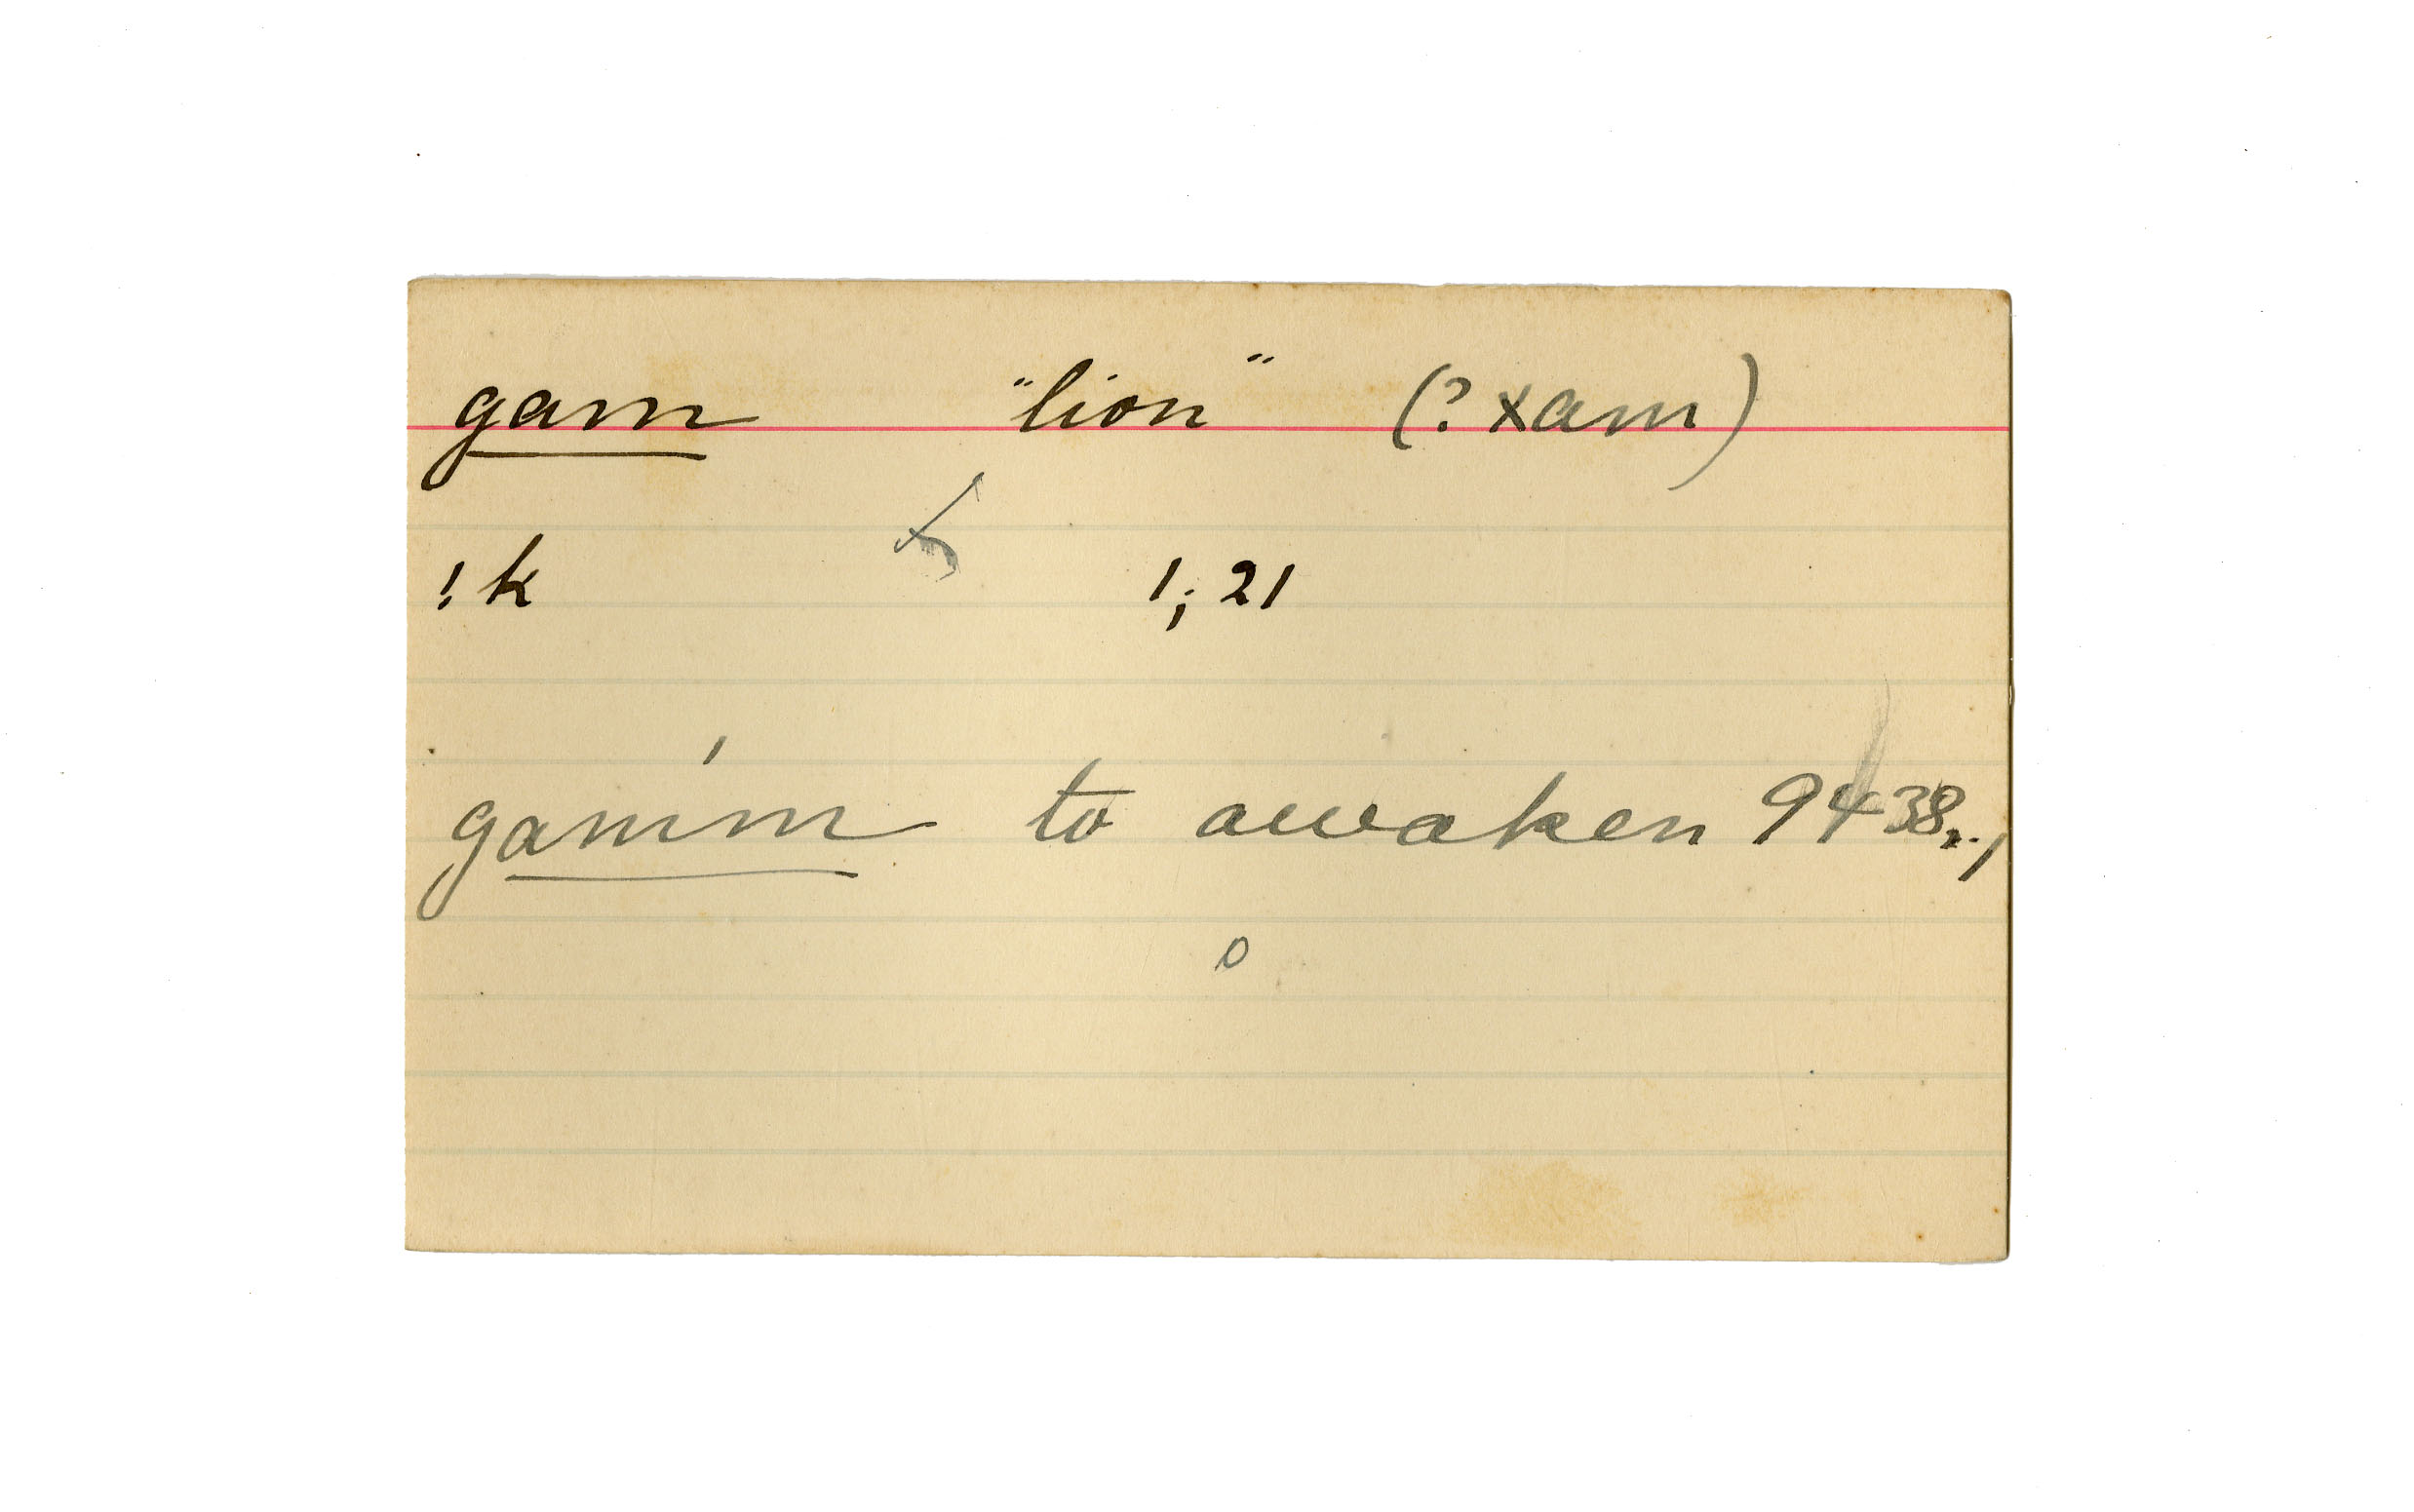 gam "lion" (? xam)
!k 1; 21
gam'm to awaken 9438.,
o